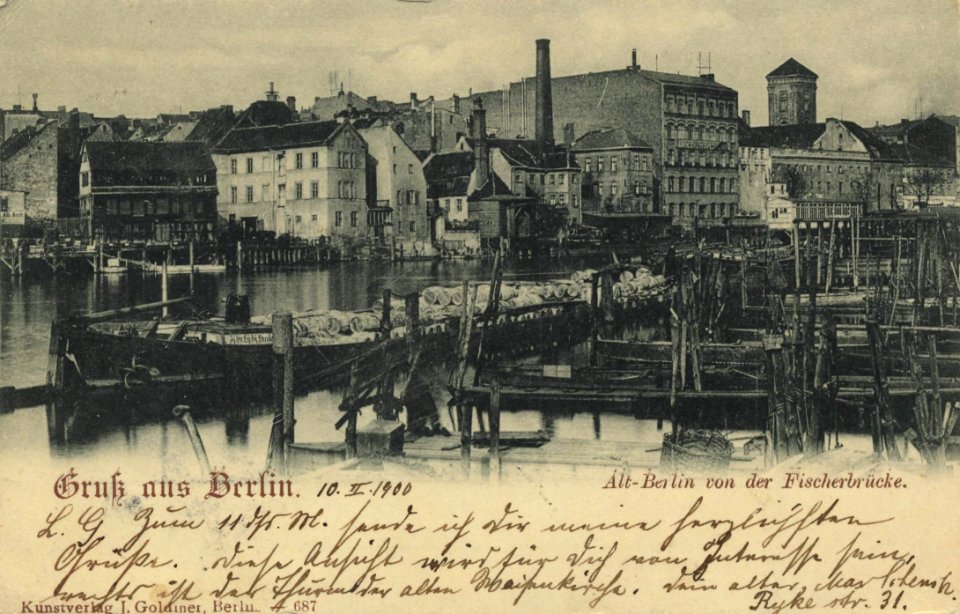 Gruß aus Berlin. 10. II. 1900
Alt-Berlin von der Fischerbrücke.
L. G. Zum 11 ds. M. sende ich Dir meine herzlichsten
Grüße. Diese Ansicht wird für Dich von Interesse sein,
rechts ist der Thurm der alten Waisenkirche. Dein alter Max
Ryke str. 31.
Kunstverlag J. Goldiner, Berlin. 687